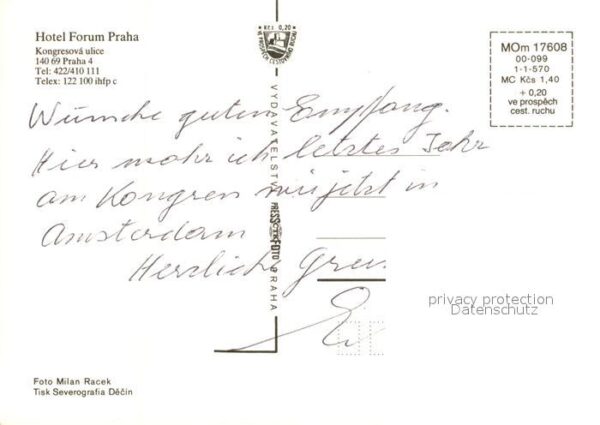 Hotel Forum Praha
Kongresová ulice
140 69 Praha 4
Tel: 422/410 111
Telex: 122 100 ihfp c
Kčs 0,20
VE PROSPĚCH CESTOVNÍHO RUCHU
MOm 17608
00-099
1-1-570
MC Kčs 1,40
+ 0,20
ve prospěch
cest. ruchu
VYDAVATELSTVÍ PRESSFOTO PRAHA
Wünsche guten Empfang.
Hier ich letztes Jahr
am Kongress jetzt in
Amsterdam
Herzliche
privacy protection
Datenschutz
Foto Milan Racek
Tisk Severografia Děčín